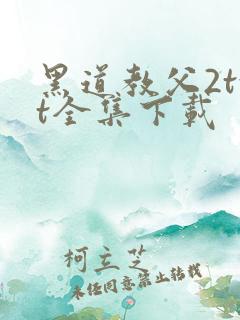 黑道教父2tx
t全集下载
柯立芝
未经同意禁止转载